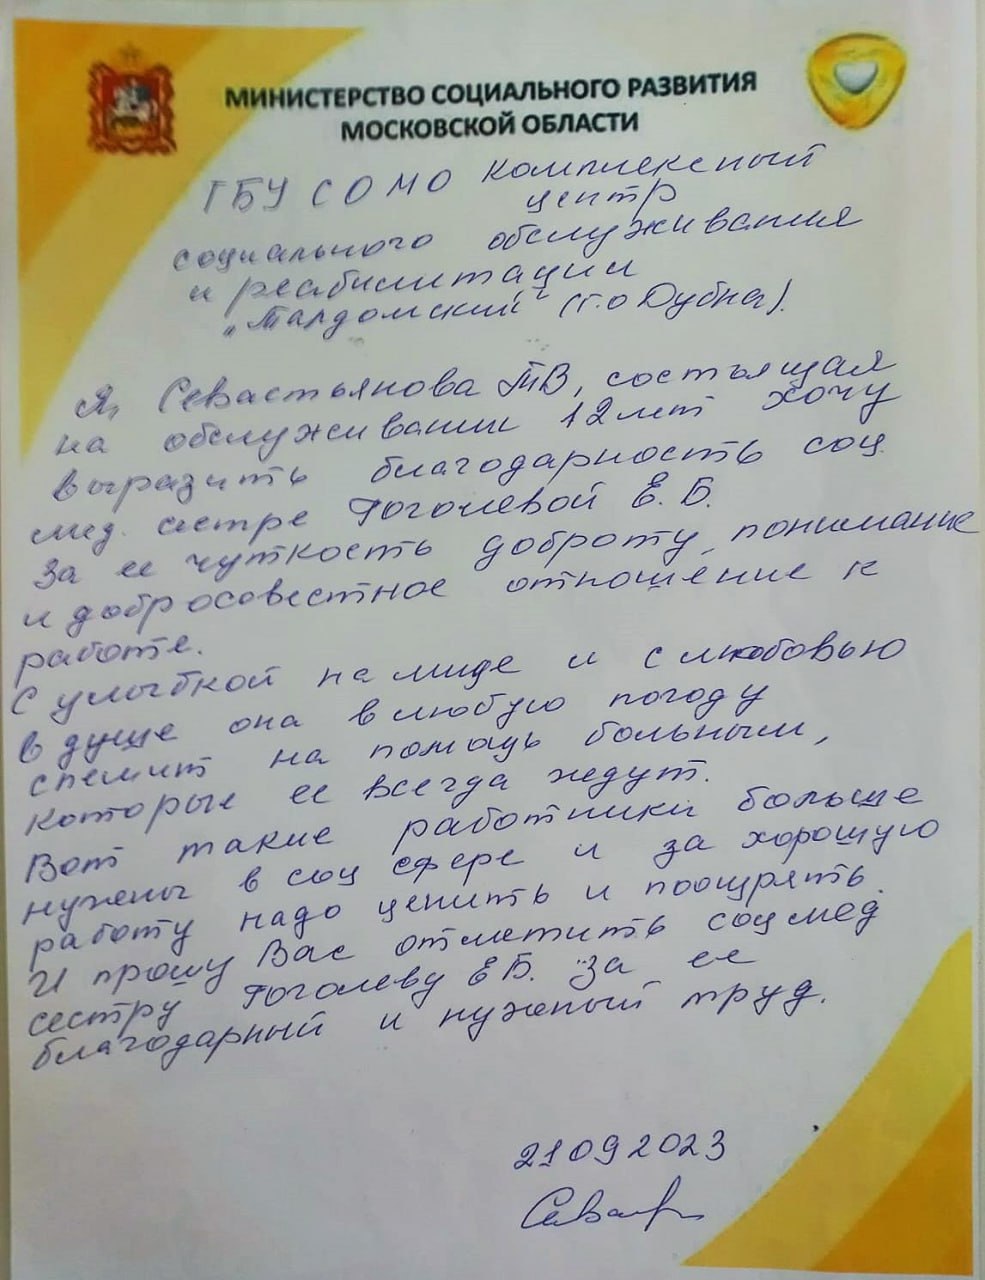 МИНИСТЕРСТВО СОЦИАЛЬНОГО РАЗВИТИЯ
МОСКОВСКОЙ ОБЛАСТИ
ГБУ СО МО Комплексный
центр
социального обслуживания
и реабилитации
„Талдомский" (г.о Дубна).
Я, Севастьянова ТВ, состоящая
на обслуживании 12 лет хочу
выразить благодарность соц.
мед. сестре Гоголевой Е. Б.
За ее чуткость доброту, понимание
и добросовестное отношение к
работе.
С улыбкой на лице и с любовью
в душе она в любую погоду
спешит на помощь больным,
которые ее всегда ждут.
Вот такие работники больше
нужены в соц сфере и за хорошую
работу надо ценить и поощрять.
И прошу Вас отметить соцмед
сестру Гоголеву ЕБ. За ее
благодарный и нужный труд.
21 09 2023